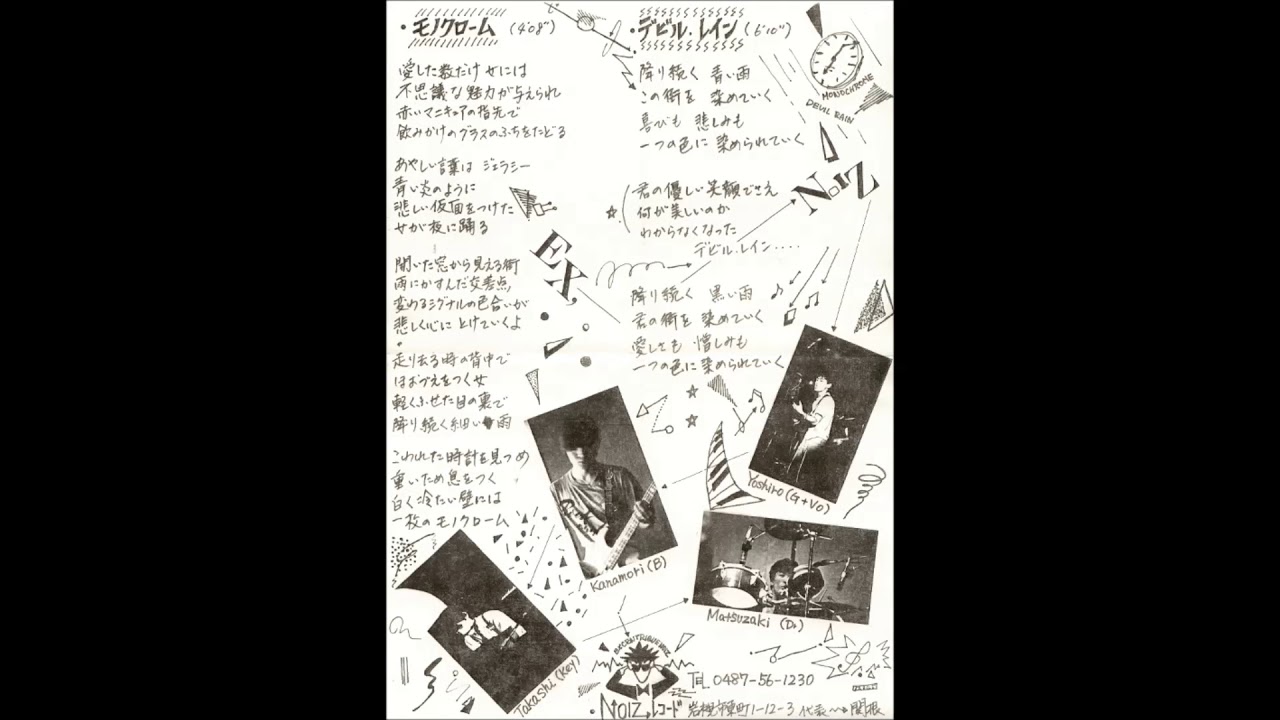 ・モノクローム (4'08")
愛した数だけ 女には
不思議な魅力が与えられ
赤いマニキュアの指先で
飲みかけのグラスのふちをたどる
あやしい言葉は ジェラシー
青い炎のように
悲しい仮面をつけた
女が夜に踊る
開いた窓から見える街
雨にかすんだ交差点
変わるシグナルの色合いが
悲しく心に とけていくよ
走り去る時の背中で
ほおづえをつく女
軽くふせた目の裏で
降り続く細い雨
こわれた時計を見つめ
重いため息をつく
白く冷たい壁には
一枚のモノクローム
・デビル.レイン (6'10")
降り続く 青い雨
この街を 染めていく
喜びも 悲しみも
一つの色に 染められていく
君の優しい笑顔でさえ
何が美しいのか
わからなくなった
デビル.レイン....
降り続く 黒い雨
君の街を 染めていく
愛しさも 憎しみも
一つの色に 染められていく
MONOCHROME
DEVIL RAIN
NOIZ
EX,
Yoshiro (G+Vo)
Kanamori (B)
Matsuzaki (Dr)
Takashi (Key)
NOIZレコード
TEL 0487-56-1230
1-12-3 代表 関根